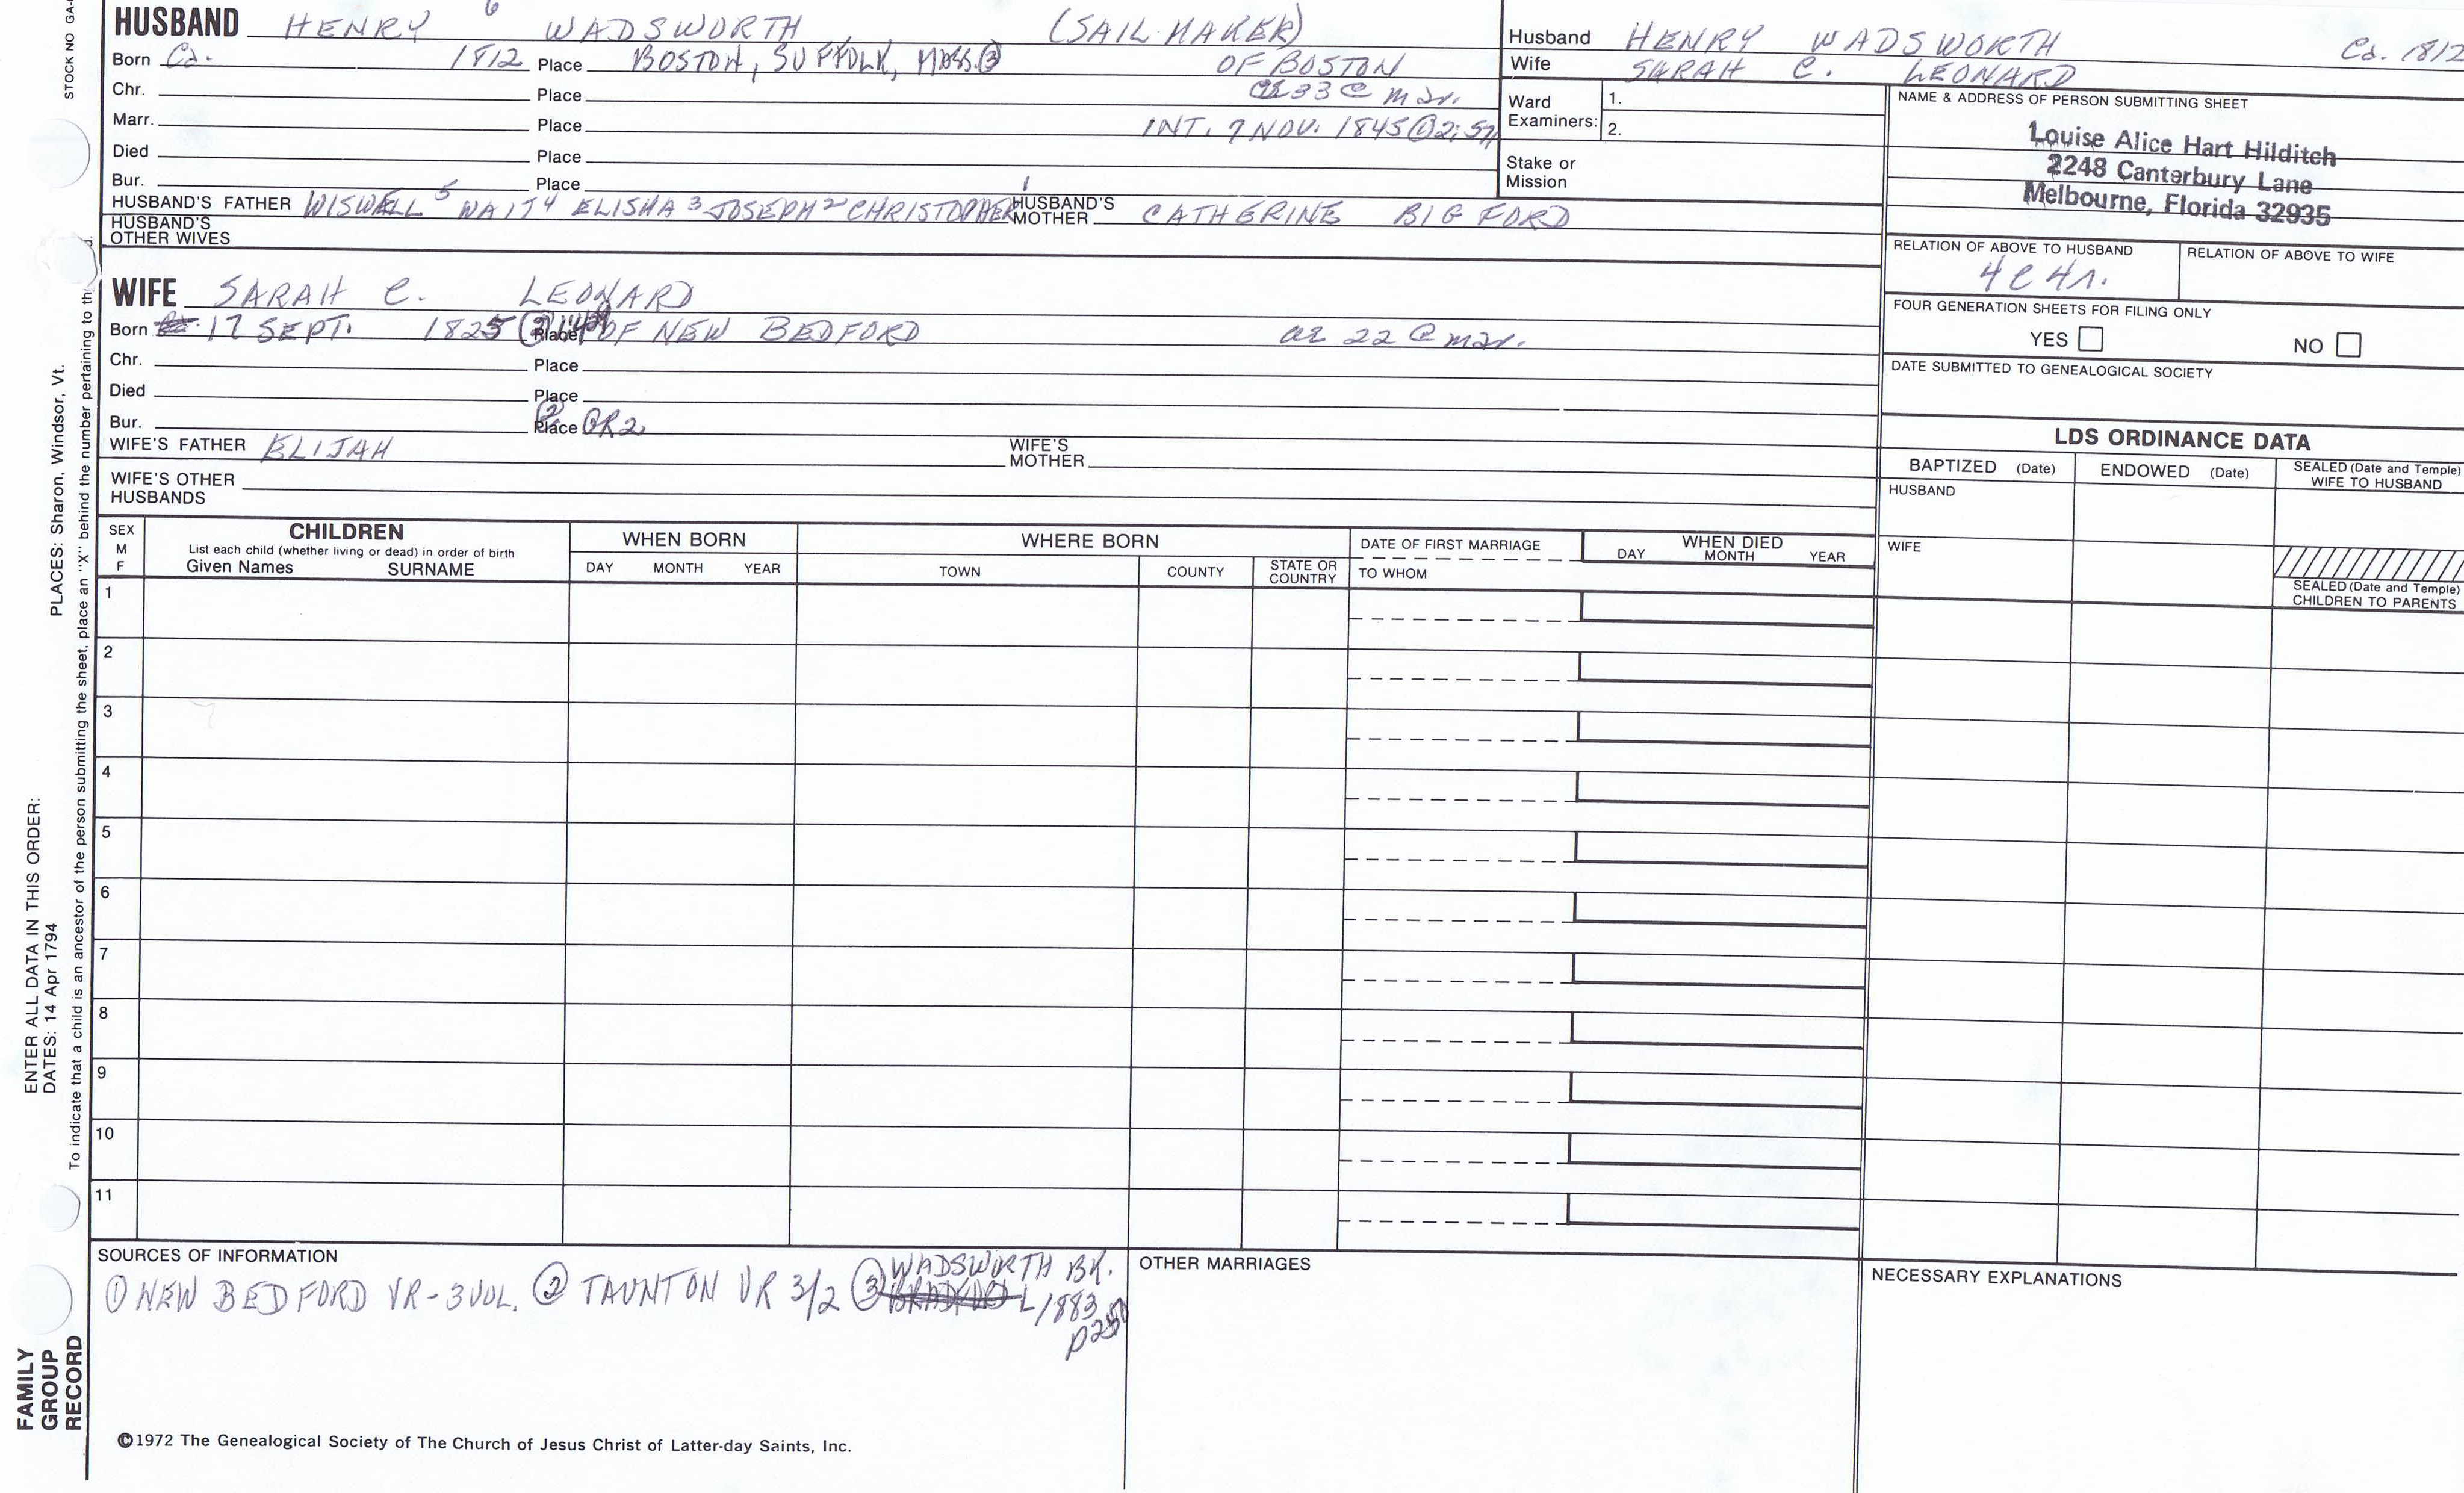 STOCK NO GA-
HUSBAND HENRY 6 WADSWORTH (SAIL MAKER)
Born Ca. 1812 Place BOSTON, SUFFOLK, MASS. ③ OF BOSTON
Chr. Place 33 @ mar.
Marr. Place INT. 7 NOV. 1845 ① 2:571
Died Place
Bur. Place
HUSBAND'S FATHER WISWELL 5 WAIT 4 ELISHA 3 JOSEPH 2 CHRISTOPHER 1 HUSBAND'S MOTHER CATHERINE BIGFORD
HUSBAND'S OTHER WIVES
WIFE SARAH C. LEONARD
Born 17 SEPT. 1825 Place OF NEW BEDFORD ae 22 @ mar.
Chr. Place
Died Place
Bur. Place ② OR 2
WIFE'S FATHER ELIJAH WIFE'S MOTHER
WIFE'S OTHER HUSBANDS
Husband HENRY WADSWORTH Ca. 1812
Wife SARAH C. LEONARD
Ward Examiners: 1.
2.
Stake or Mission
NAME & ADDRESS OF PERSON SUBMITTING SHEET
Louise Alice Hart Hilditch
2248 Canterbury Lane
Melbourne, Florida 32935
RELATION OF ABOVE TO HUSBAND RELATION OF ABOVE TO WIFE
4C4r.
FOUR GENERATION SHEETS FOR FILING ONLY
YES NO
DATE SUBMITTED TO GENEALOGICAL SOCIETY
LDS ORDINANCE DATA
BAPTIZED (Date) ENDOWED (Date) SEALED (Date and Temple) WIFE TO HUSBAND
HUSBAND
WIFE
SEALED (Date and Temple)
CHILDREN TO PARENTS
SEX M F
CHILDREN
List each child (whether living or dead) in order of birth
Given Names SURNAME
WHEN BORN
DAY MONTH YEAR
WHERE BORN
TOWN COUNTY STATE OR COUNTRY
DATE OF FIRST MARRIAGE
TO WHOM
WHEN DIED
DAY MONTH YEAR
1
2
3
4
5
6
7
8
9
10
11
SOURCES OF INFORMATION
① NEW BEDFORD VR-3VOL. ② TAUNTON VR 3/2 ③ WADSWORTH BK.
L/1883
OTHER MARRIAGES
NECESSARY EXPLANATIONS
©1972 The Genealogical Society of The Church of Jesus Christ of Latter-day Saints, Inc.
PLACES: Sharon, Windsor, Vt.
ENTER ALL DATA IN THIS ORDER:
DATES: 14 Apr 1794
To indicate that a child is an ancestor of the person submitting the sheet, place an "X" behind the number pertaining to
FAMILY
GROUP
RECORD